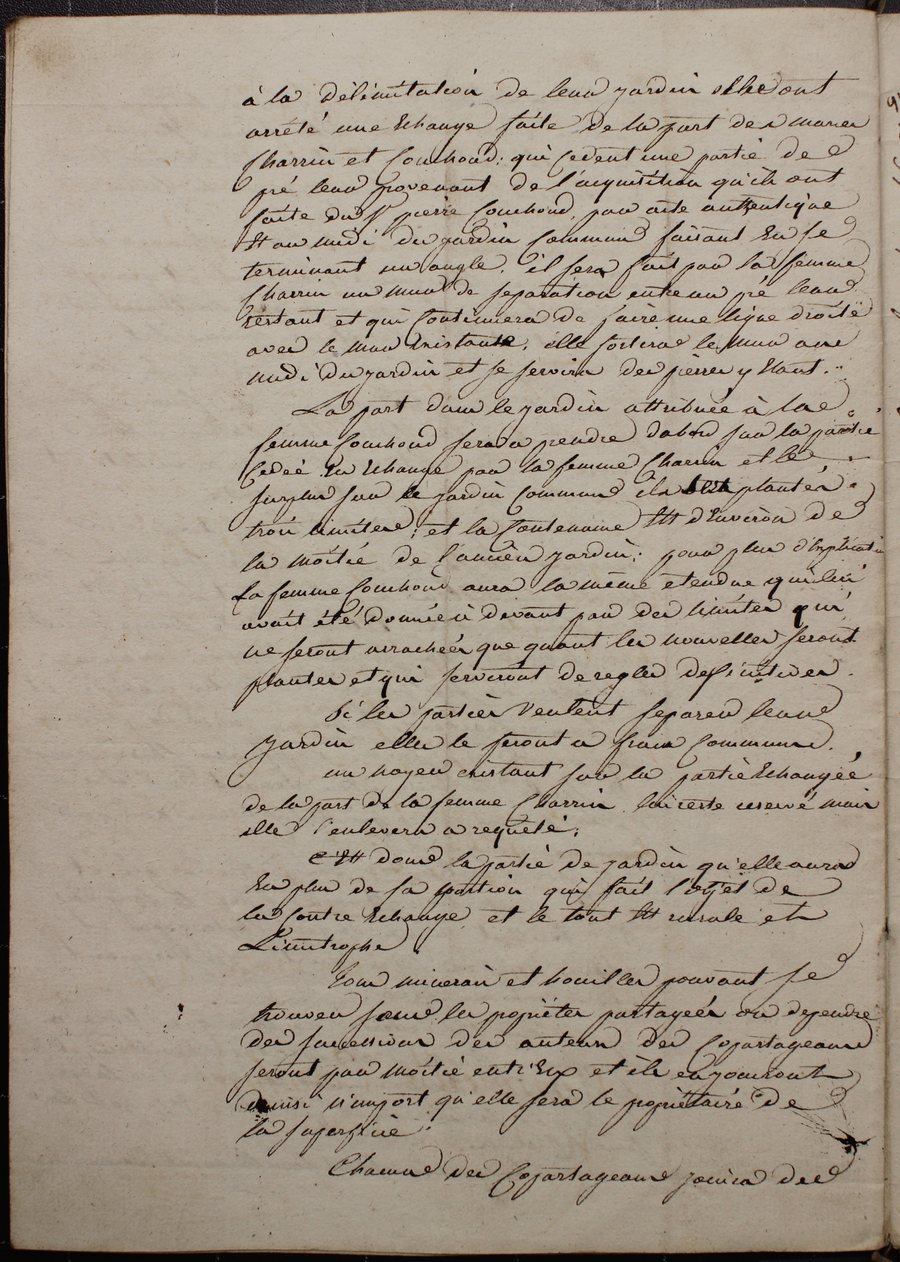 à la délimitation de leur jardin elles ont
arrété une Echange faite de la part des maries
Charrin et Couchoud: qui cedent une partie de
pré leur provenant de l'acquisition qu'ils ont
faite du Sr pierre Couchoud, par acte authentique
Et au midi du jardin Commun faisant En se
terminant un angle. il sera fait par la femme
Charrin un mur de separation entre un pré leur
restant et qui Continuera de faire une ligne droite
avec le mur Existant. elle sortira le mur au
midi du jardin et se servira des pierres y Etant..
La part dans le jardin attribuée à la
femme Couchoud sera a prendre dabord sur la partie
Cedeé En Echange par la femme Charrin et le
surplus sur le jardin Commun ils sera plantés
trois limites; et la Contenance Est d'Environ de
la moitié de l'ancien jardin; pour plus d'Explication
La femme Couchoud aura la même étendue qui lui
avait été donnée ci devant par des limites qui
ne seront arrachées que quant les nouvelles seront
plantes et qui serviront de regles definitives.
Si les parties Veulent separer leur
jardin elles le feront a frais Communs.
un noyer existant sur la partie Echangée
de la part de la femme Charrin lui reste reservé mais
elle l'enlevera a requéte.
C'Est donc la partie de jardin qu'elle aura
En plus de sa portion qui fait l'objet de
la Contre Echange et le tout Est rurale et
Limitrophe
Tous minerais et houilles pouvant se
trouver sous les propiétes partagées ou dependre
des successions des auteurs des Copartageans
seront par moitié entr'Eux et ils en jouiront
ainsi n'import qu'elle sera le propiétaire de
la superficie.
Chacun des Copartageans jouira des